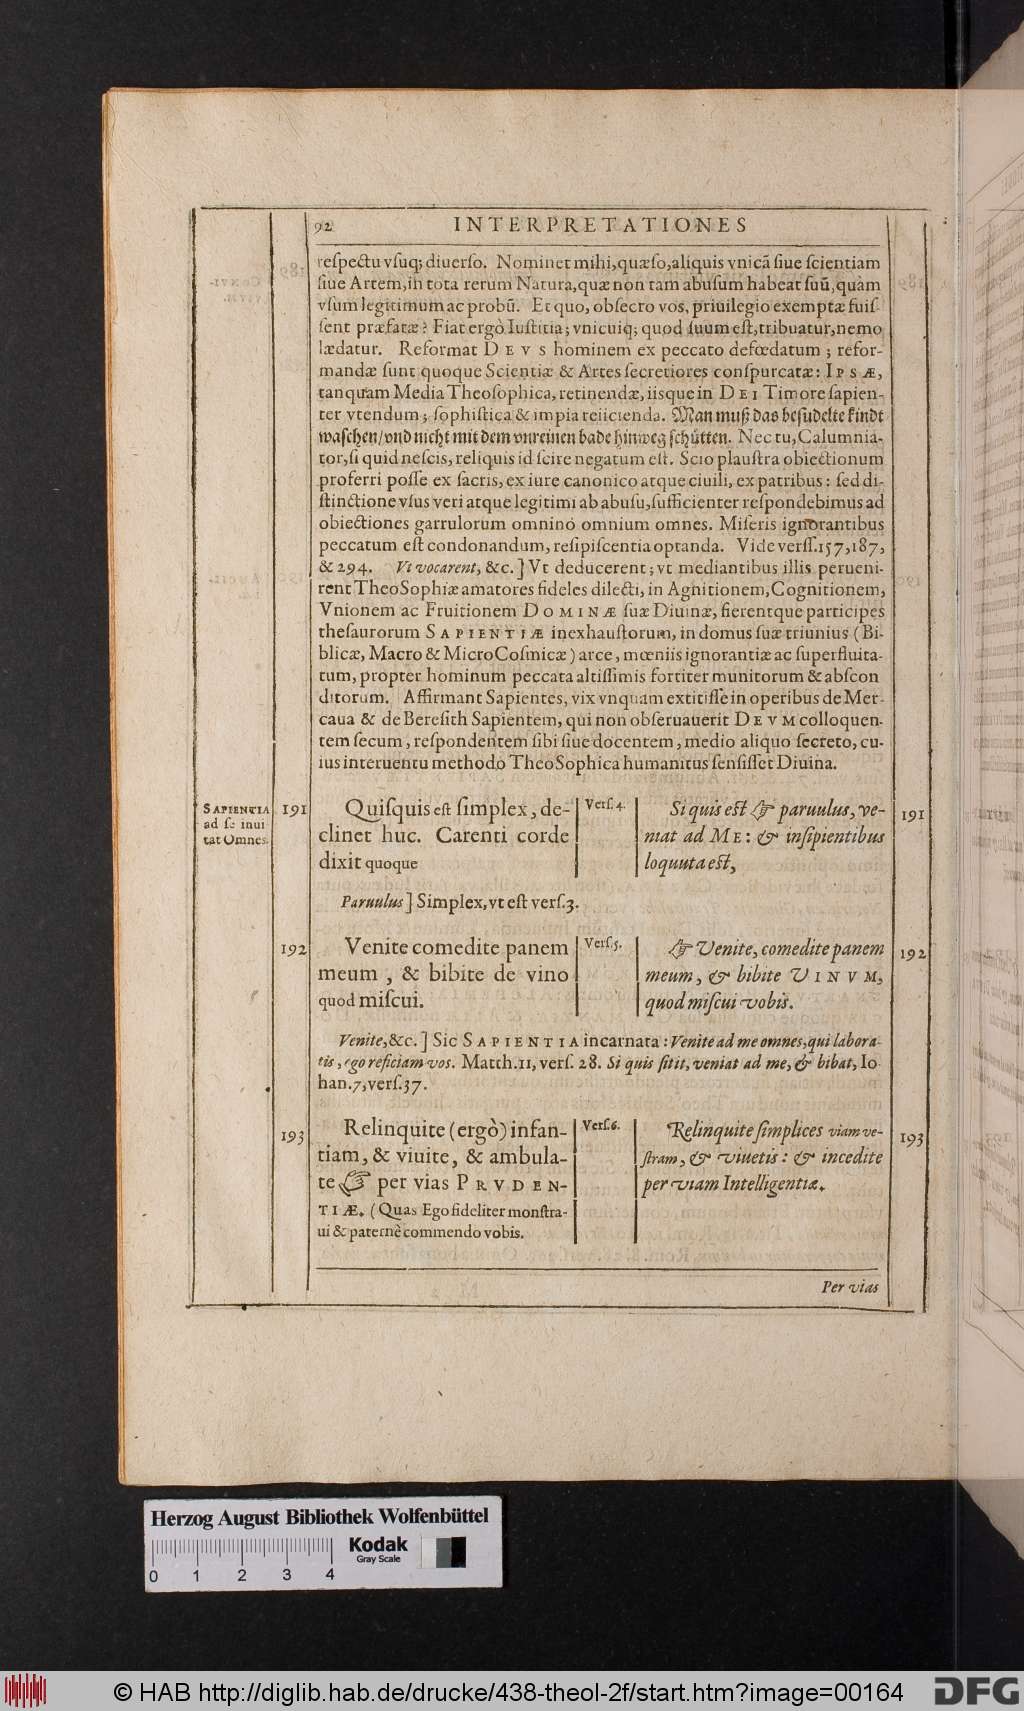 92 INTERPRETATIONES
respectu vsuq; diuerso. Nominet mihi, quæso, aliquis vnicã siue scientiam
siue Artem, in tota rerum Natura, quæ non tam abusum habeat suũ, quàm
vsum legitimum ac probũ. Et quo, obsecro vos, priuilegio exemptæ fuis-
sent præfatæ? Fiat ergò Iustitia; vnicuiq; quod suum est, tribuatur, nemo
lædatur. Reformat DEVS hominem ex peccato defœdatum; refor-
mandæ sunt quoque Scientiæ & Artes secretiores conspurcatæ: IPSÆ,
tanquam Media Theosophica, retinendæ, iisque in DEI Timore sapien-
ter vtendum; sophistica & impia reiicienda. Man muß das besudelte kindt
waschen/vnd nicht mit dem vnreinen bade hinweg schütten. Nec tu, Calumnia-
tor, si quid nescis, reliquis id scire negatum est. Scio plaustra obiectionum
proferri posse ex sacris, ex iure canonico atque ciuili, ex patribus: sed di-
stinctione vsus veri atque legitimi ab abusu, sufficienter respondebimus ad
obiectiones garrulorum omnino omnium omnes. Miseris ignorantibus
peccatum est condonandum, resipiscentia optanda. Vide verss. 157, 187,
& 294. Vt vocarent, &c.] Vt deducerent; vt mediantibus illis perueni-
rent TheoSophiæ amatores fideles dilecti, in Agnitionem, Cognitionem,
Vnionem ac Fruitionem DOMINÆ suæ Diuinæ, fierentque participes
thesaurorum SAPIENTIÆ inexhaustorum, in domus suæ triunius (Bi-
blicæ, Macro & MicroCosmicæ) arce, mœniis ignorantiæ ac superfluita-
tum, propter hominum peccata altissimis fortiter munitorum & abscon
ditorum. Affirmant Sapientes, vix vnquam extitisse in operibus de Mer-
caua & de Beresith Sapientem, qui non obseruauerit DEVM colloquen-
tem secum, respondentem sibi siue docentem, medio aliquo secreto, cu-
ius interuentu methodo TheoSophica humanitus sensisset Diuina.
SAPIENTIA
ad se inui
tat Omnes.
191 Quisquis est simplex, de-
clinet huc. Carenti corde
dixit quoque
Vers. 4.
Si quis est ☞ paruulus, ve-
niat ad ME: & insipientibus
loquuta est,
191
Paruulus] Simplex, vt est vers. 3.
192 Venite comedite panem
meum, & bibite de vino
quod miscui.
Vers. 5.
☞ Venite, comedite panem
meum, & bibite VINVM,
quod miscui vobis.
192
Venite, &c.] Sic SAPIENTIA incarnata: Venite ad me omnes, qui labora-
tis, ego reficiam vos. Matth. 11, vers. 28. Si quis sitit, veniat ad me, & bibat, Io-
han. 7, vers. 37.
193 Relinquite (ergò) infan-
tiam, & viuite, & ambula-
te ☞ per vias PRVDEN-
TIÆ. (Quas Ego fideliter monstra-
ui & paternè commendo vobis.
Vers. 6.
Relinquite simplices viam ve-
stram, & viuetis: & incedite
per viam Intelligentiæ.
193
Per vias
Herzog August Bibliothek Wolfenbüttel
Kodak
Gray Scale
0 1 2 3 4
© HAB http://diglib.hab.de/drucke/438-theol-2f/start.htm?image=00164
DFG